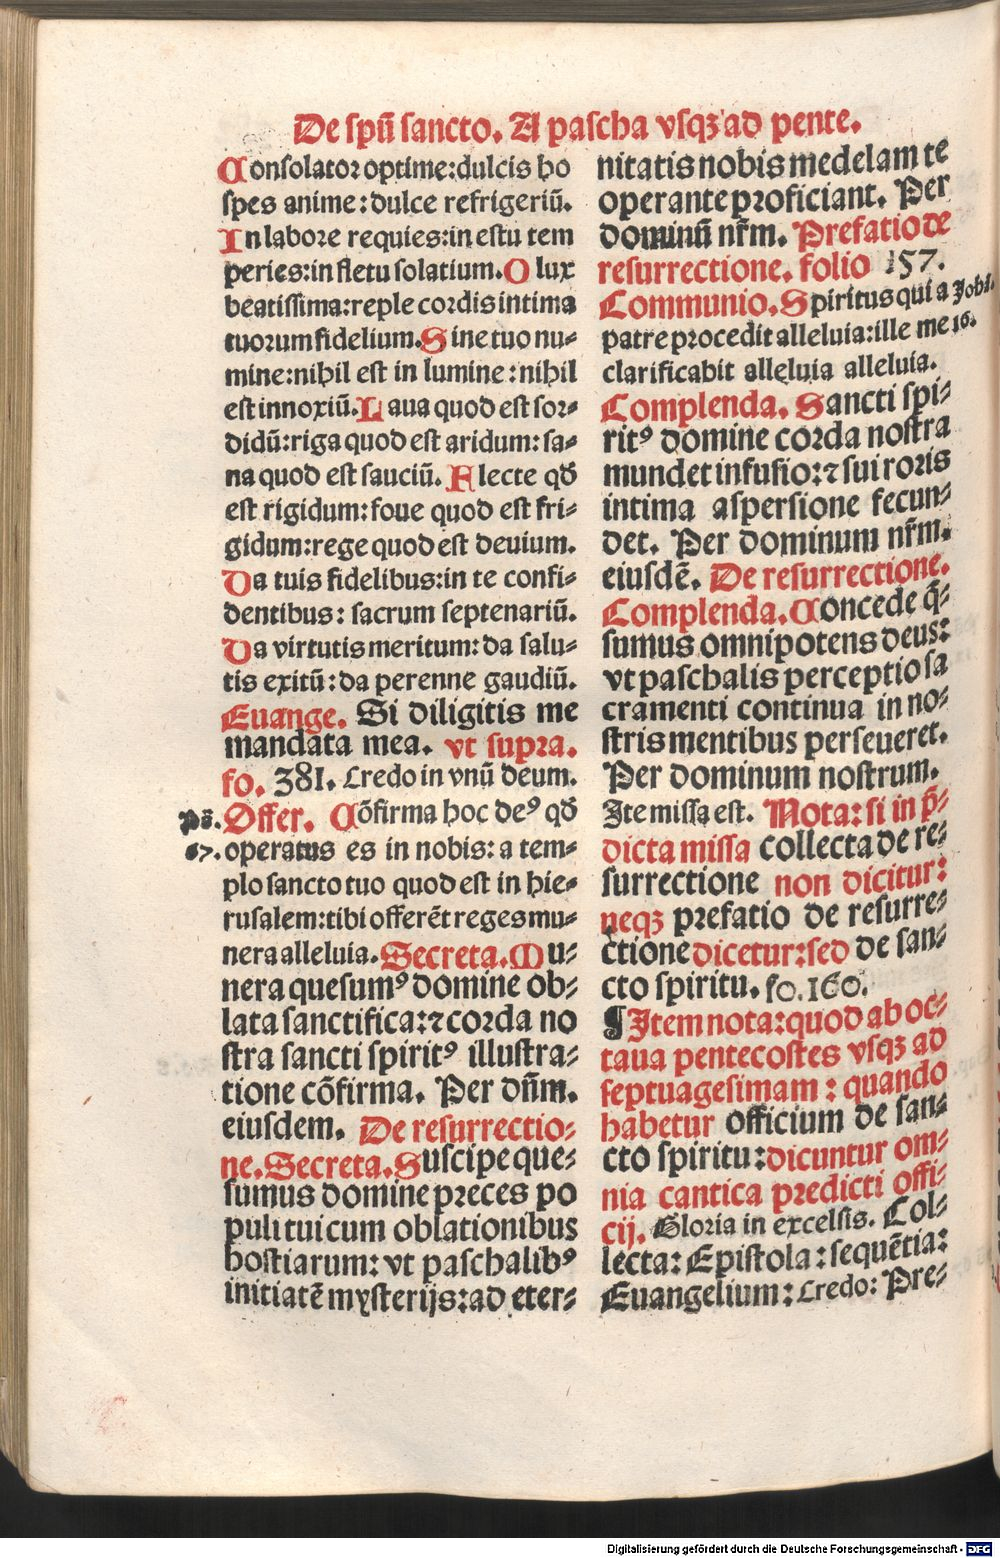 De spū sancto. A pascha vsqꝫ ad pente.
Consolator optime: dulcis ho
spes anime: dulce refrigeriū.
In labore requies: in estu tem
peries: in fletu solatium. O lux
beatissima: reple cordis intima
tuorum fidelium. Sine tuo nu⸗
mine: nihil est in lumine: nihil
est innoxiū. Laua quod est sor⸗
didū: riga quod est aridum: sa⸗
na quod est sauciū. Flecte qđ
est rigidum: foue quod est fri⸗
gidum: rege quod est deuium.
Da tuis fidelibus: in te confi⸗
dentibus: sacrum septenariū.
Da virtutis meritum: da salu⸗
tis exitū: da perenne gaudiū.
Euange. Si diligitis me
mandata mea. vt supra.
fo. 381. Credo in vnū deum.
Ps̄. Offer. Cōfirma hoc deꝰ qđ
67. operatus es in nobis: a tem⸗
plo sancto tuo quod est in hie⸗
rusalem: tibi offerēt reges mu⸗
nera alleluia. Secreta. Mu⸗
nera quesumꝰ domine ob⸗
lata sanctifica: ⁊ corda no
stra sancti spiritꝰ illustra⸗
tione cōfirma. Per dn̄m.
eiusdem. De resurrectio⸗
ne. Secreta. Suscipe que⸗
sumus domine preces po
puli tui cum oblationibus
hostiarum: vt paschalibꝰ
initiatē mysterijs: ad eter⸗
nitatis nobis medelam te
operante proficiant. Per
dominū nr̄m. Prefatio de
resurrectione. folio 157.
Communio. Spiritus qui a Johī.
patre procedit alleluia: ille me 16.
clarificabit alleluia alleluia.
Complenda. Sancti spi⸗
ritꝰ domine corda nostra
mundet infusio: ⁊ sui roris
intima aspersione fecun⸗
det. Per dominum nr̄m.
eiusdē. De resurrectione.
Complenda. Concede q̄⸗
sumus omnipotens deus:
vt paschalis perceptio sa
cramenti continua in no⸗
stris mentibus perseueret.
Per dominum nostrum.
Ite missa est. Nota: si in p̄⸗
dicta missa collecta de re⸗
surrectione non dicitur:
neqꝫ prefatio de resurre⸗
ctione dicetur: sed de san⸗
cto spiritu. fo. 160.
¶ Item nota: quod ab oc⸗
taua pentecostes vsqꝫ ad
septuagesimam: quando
habetur officium de san⸗
cto spiritu: dicuntur om⸗
nia cantica predicti offi⸗
cij. Gloria in excelsis. Col⸗
lecta: Epistola: sequētia:
Euangelium: Credo: Pre⸗
Digitalisierung gefördert durch die Deutsche Forschungsgemeinschaft - DFG